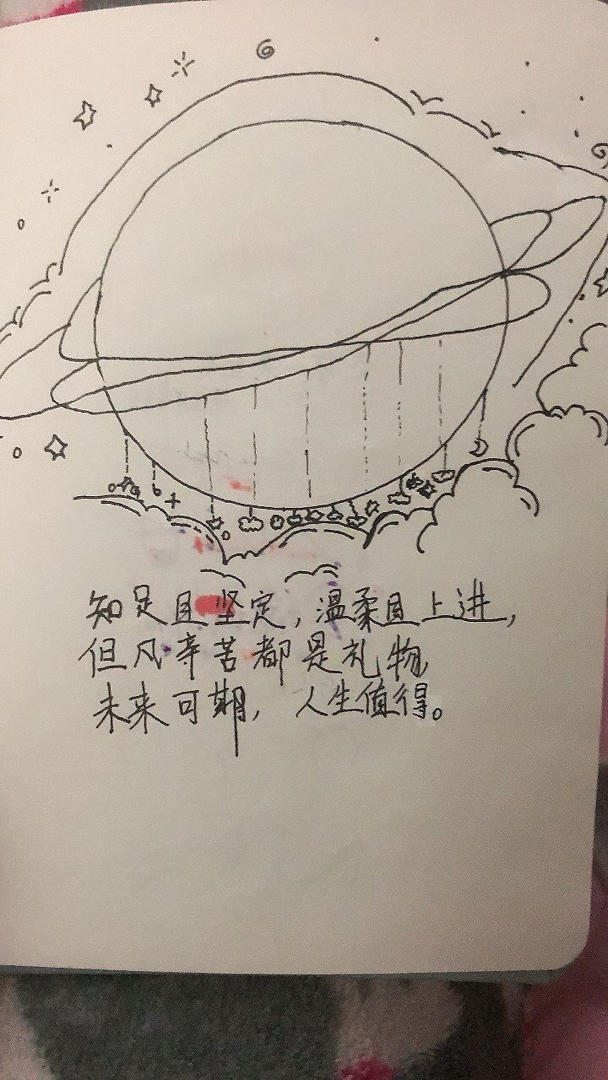 知足且坚定，温柔且上进，
但凡辛苦都是礼物，
未来可期，人生值得。